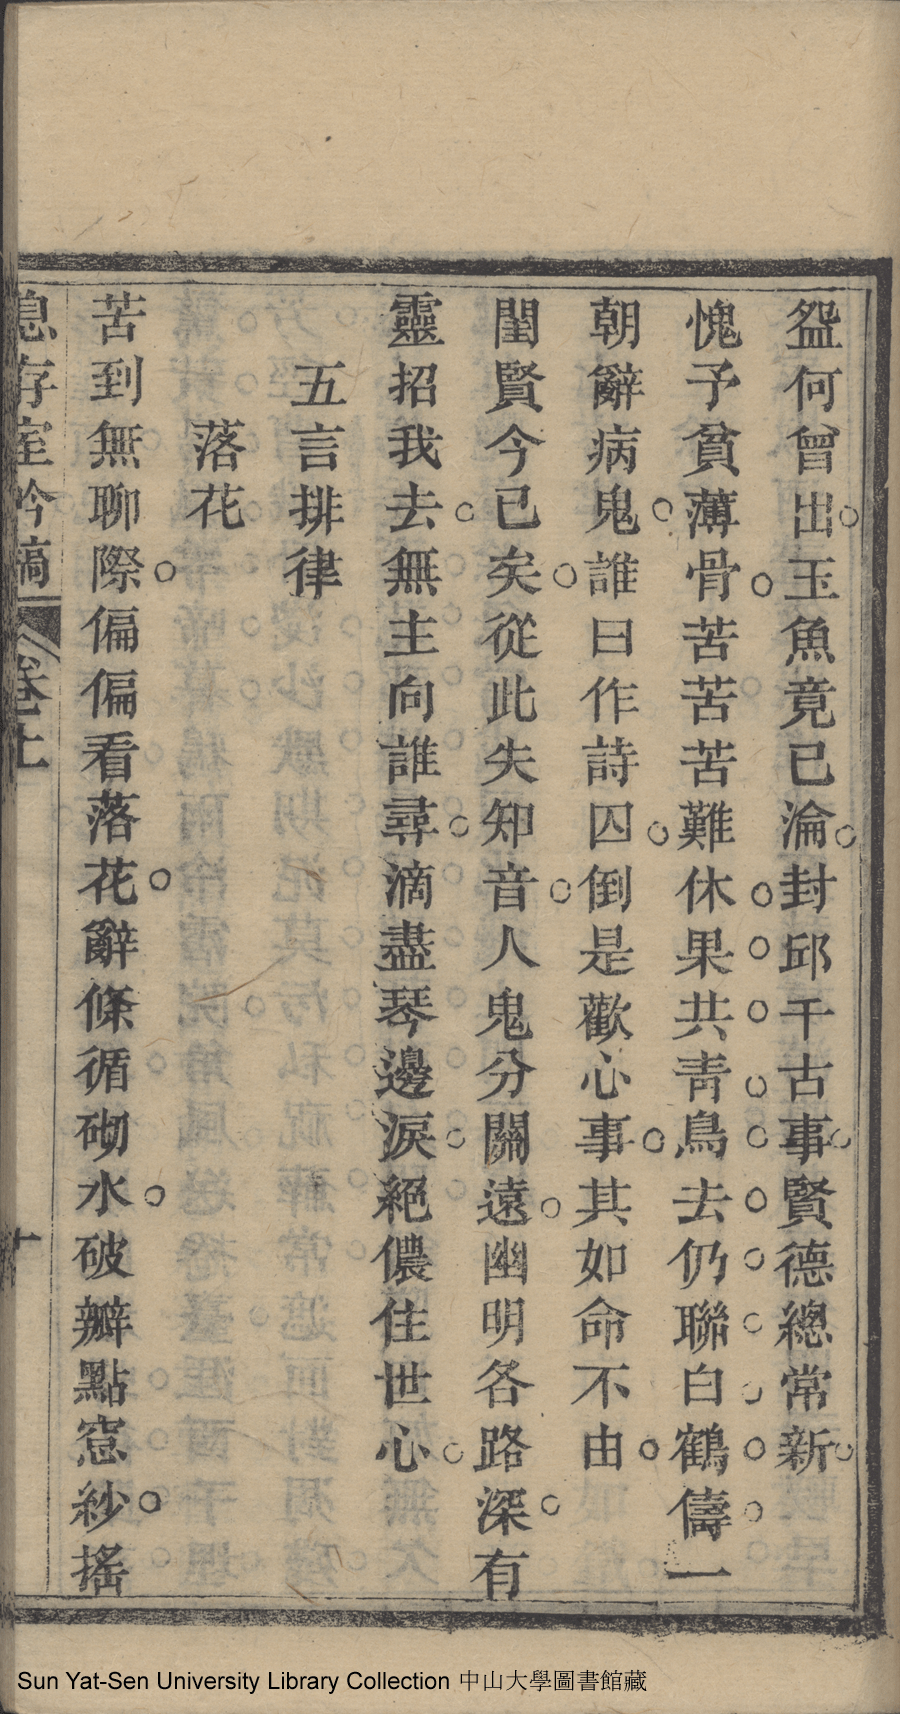 盌何曾出玉魚竟已淪封邱千古事賢德總常新
愧予貧薄骨苦苦苦難休果共青鳥去仍聯白鶴儔一
朝辭病鬼誰曰作詩囚倒是歡心事其如命不由
閨賢今已矣從此失知音人鬼分關遠幽明各路深有
靈招我去無主向誰尋滴盡琴邊淚絕儂住世心
五言排律
落花
苦到無聊際偏偏看落花辭條循砌水破瓣點窓紗搖
息存室吟稿 卷上 十
Sun Yat-Sen University Library Collection 中山大學圖書館藏